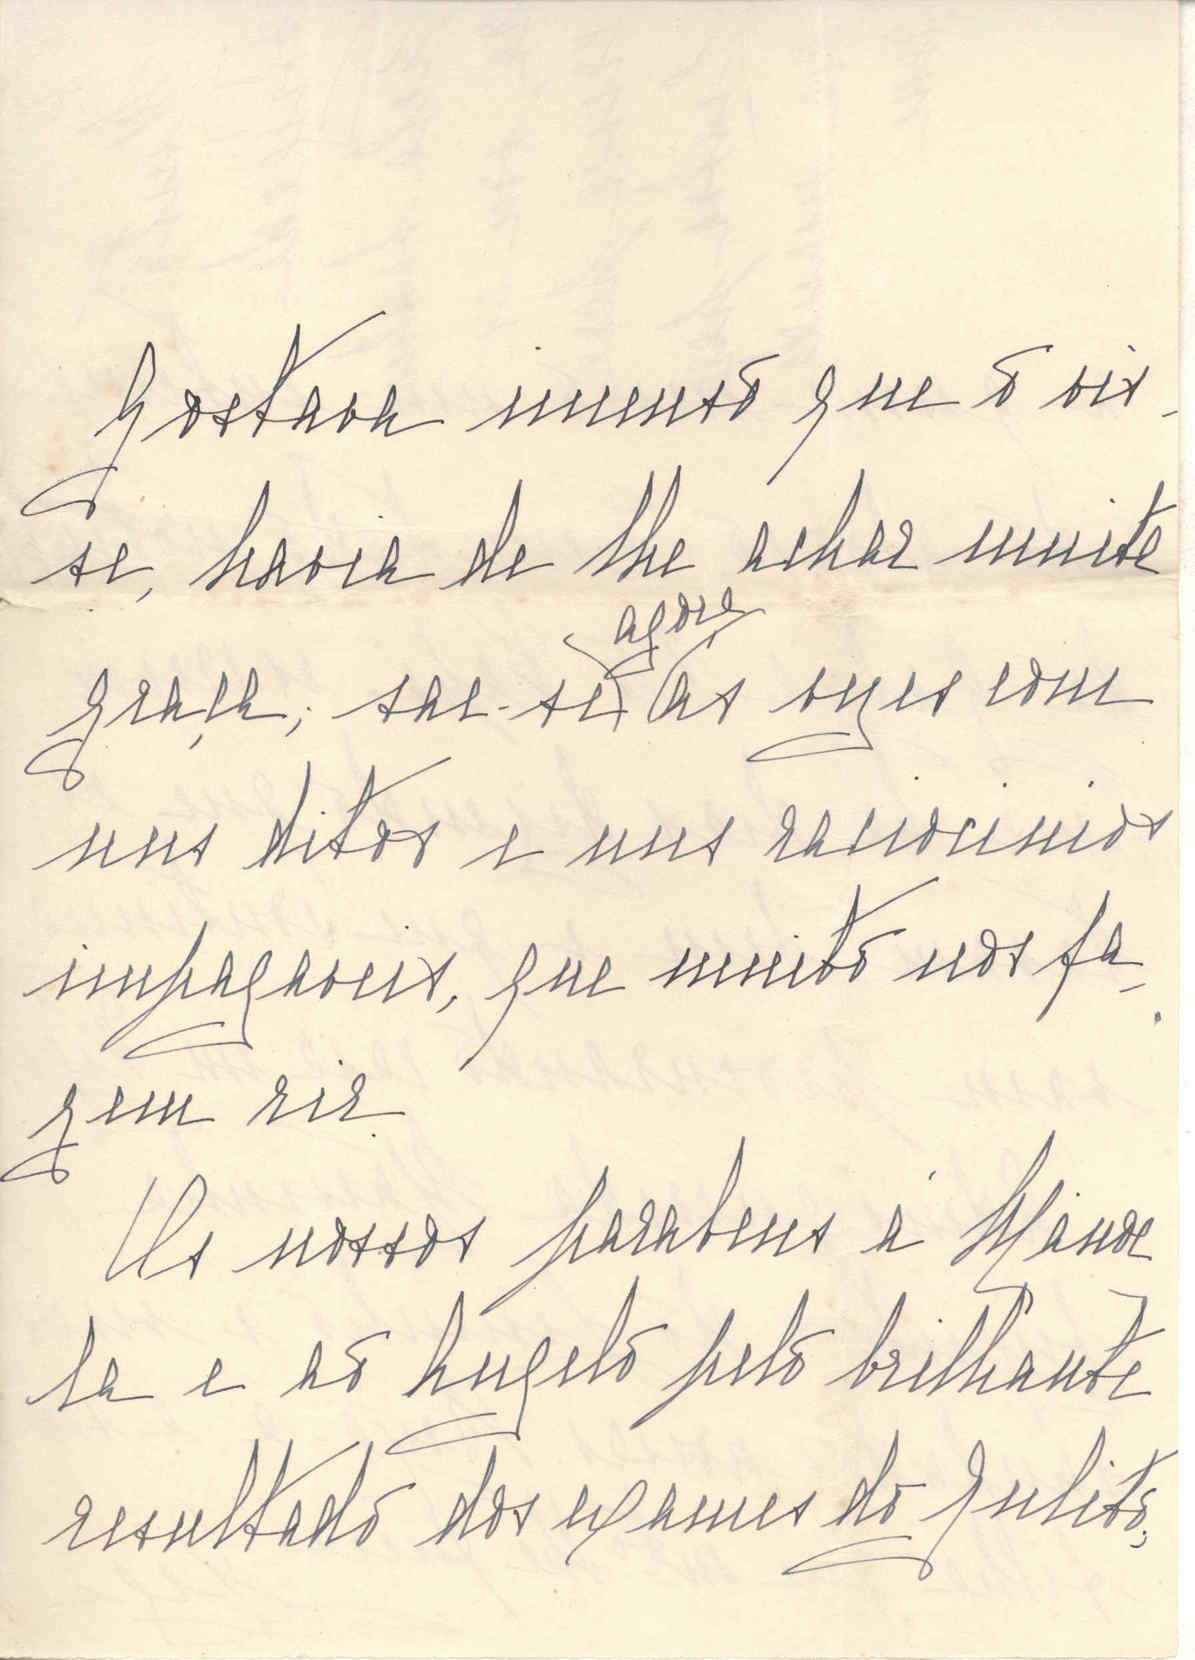 Gostava imenso que o vis-
se, havia de lhe achar muita
graça; sae-se agora às vezes com
uns ditos e uns raciocinios
impagaveis, que muito nos fa-
zem rir.
Os nossos parabens á Manoe
la e ao Angelo pelo brilhante
resultado dos exames do Julito,